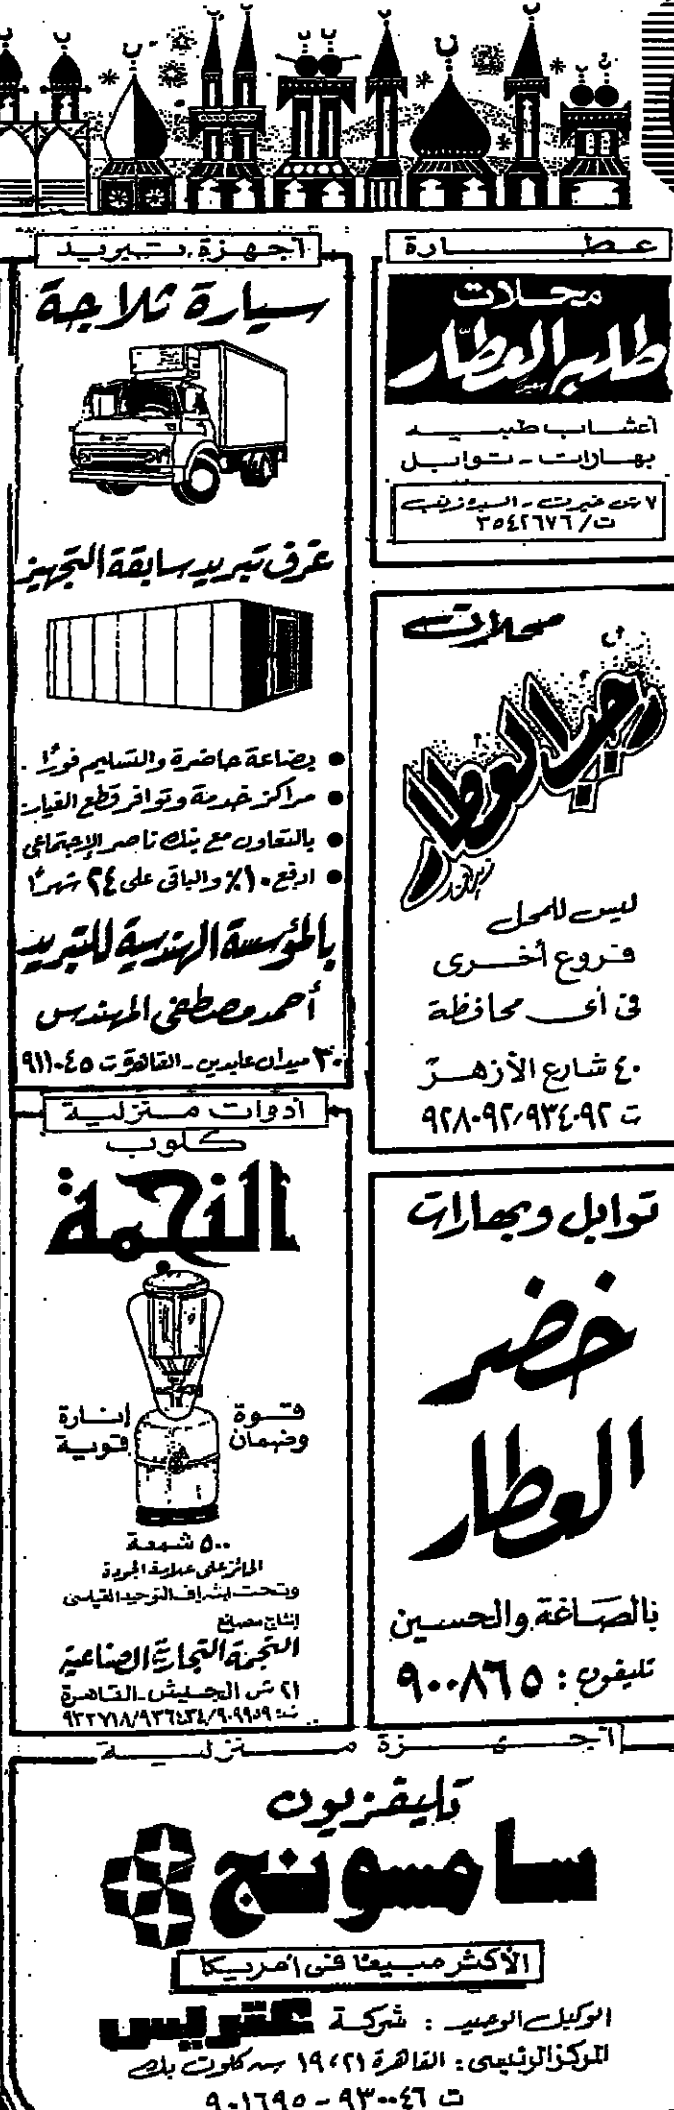 عطارة
محلات
طلبه العطار
أعشاب طبيه
بهارات - توابل
٧ ش خيرت - السيدة زينب
ت / ٣٥٤٢٦٧٦
محلات
رجب العطار
ليس للمحل
فروع أخرى
فى أى محافظة
٤٠ شارع الأزهر
ت ٩٣٤٠٩٢ / ٩٢٨٠٩٢
توابل وبهارات
خضر
العطار
بالصاغة والحسين
تليفون : ٩٠٠٨٦٥
أجهزة تبريد
سيارة ثلاجة
غرف تبريد سابقة التجهيز
● بضاعة حاضرة والتسليم فوراً .
● مراكز خدمة وتوافر قطع الغيار .
● بالتعاون مع بنك ناصر الإجتماعى
● ادفع ١٠٪ والباقى على ٢٤ شهراً
بالمؤسسة الهندسية للتبريد
أحمد مصطفى المهندس
٣٠ ميدان عابدين - القاهرة ت ٩١١٠٤٥
أدوات منزلية
كلوب
النجمة
قوة وضمان
إنارة قوية
٥٠٠ شمعة
الحائز على علامة الجودة
وتحت إشراف التوحيد القياسى
إنتاج مصانع
النجمة التجارية الصناعية
٢١ ش الجيش - القاهرة
ت : ٩٠٩٩٥٩ / ٩٣٦٤٣٤ / ٩٣٢٧١٨
أجهزة منزلية
تليفزيون
سامسونج
الأكثر مبيعا فى أمريكا
الوكيل الوحيد : شركة عتريس
المركز الرئيسى : القاهرة ١٩،٢١ ش كلوت بك
ت ٩٣٠٠٤٦ - ٩٠١٦٩٥